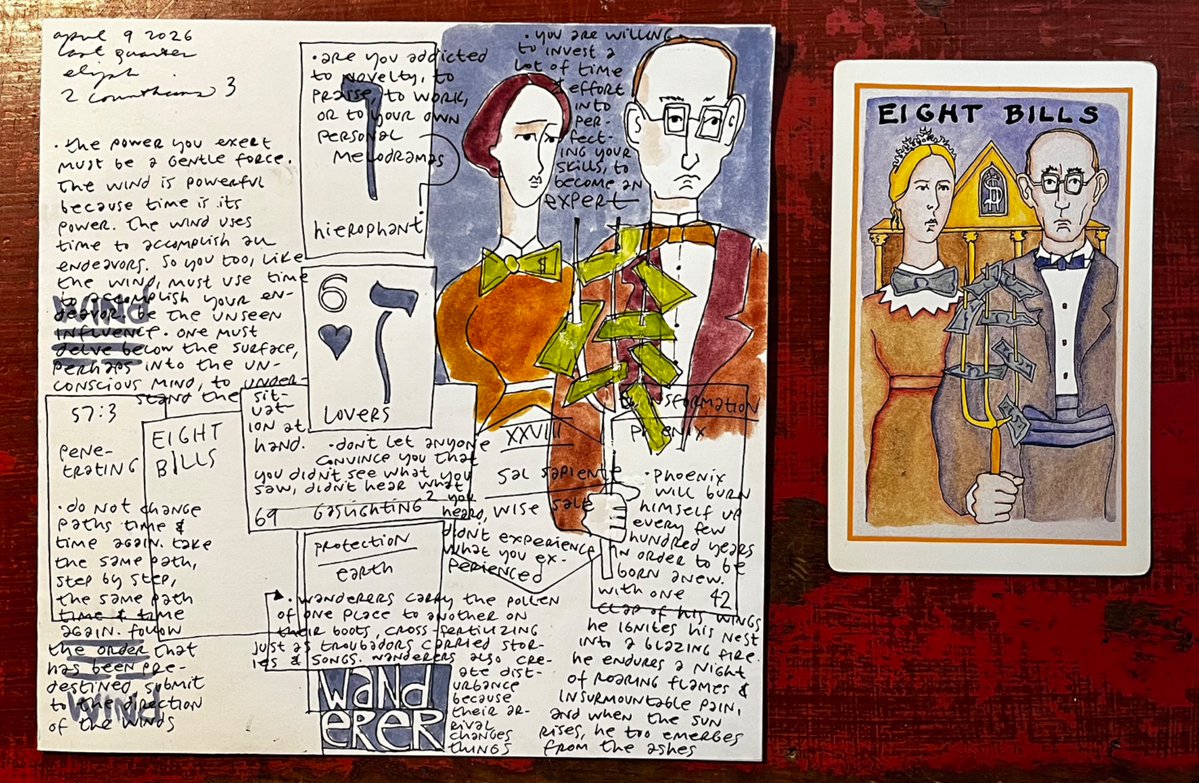 april 9 2026
last quarter
2 corinthians 3
• the power you exert
must be a gentle force.
The wind is powerful
because time is its
power. The wind uses
time to accomplish all
endeavors. So you too, like
the wind, must use time
to accomplish your en-
deavor. Be the unseen
influence. One must
delve below the surface,
perhaps into the un-
conscious mind, to under-
stand the
sit-
uat
ion at
hand.
WIND
57:3
pene-
trating
• do not change
paths time &
time again. take
the same path,
step by step,
the same path
time & time
again. follow
the order that
has been pre-
destined. submit
to the direction
of the winds
WIND
EIGHT
BILLS
• are you addicted
to novelty, to
praise, to work,
or to your own
personal
melodramas
?
ו
hierophant
6
♥
ז
LOVERS
• don't let anyone
convince you that
you didn't see what you
saw, didn't hear what you
heard,
didn't experience
what you ex-
perienced
69 gaslighting 2
• you are willing
to invest a
lot of time
& effort
into
per-
fect-
ing your
skills, to
become an
expert
$
XXVIII
sal sapiente
wise salt
protection
earth
• wanderers carry the pollen
of one place to another on
their boots, cross-fertilizing
just as troubadors carried stor-
ies & songs. wanderers also cre-
ate dist-
urbance
because
their ar-
rival
changes
things
WAND
ERER
transformation
phoenix
• phoenix
will burn
himself up
every few
hundred years
in order to be
born anew.
with one
clap of his wings
he ignites his nest
into a blazing fire.
he endures a night
of roaring flames &
insurmountable pain,
and when the sun
rises, he too emerges
from the ashes
42
EIGHT BILLS
$